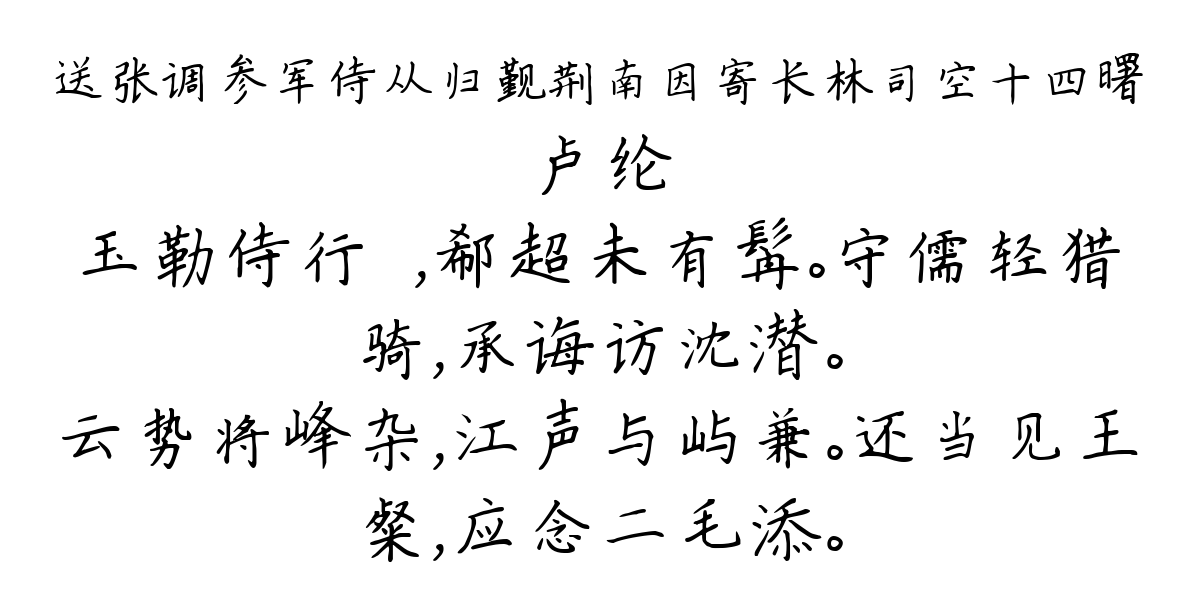 送张调参军侍从归觐荆南因寄长林司空十四曙
卢纶
玉勒侍行 ,郗超未有髯。守儒轻猎
骑,承诲访沈潜。
云势将峰杂,江声与屿兼。还当见王
粲,应念二毛添。